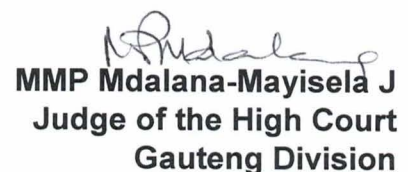 MMP Mdalana-Mayisela J
Judge of the High Court
Gauteng Division